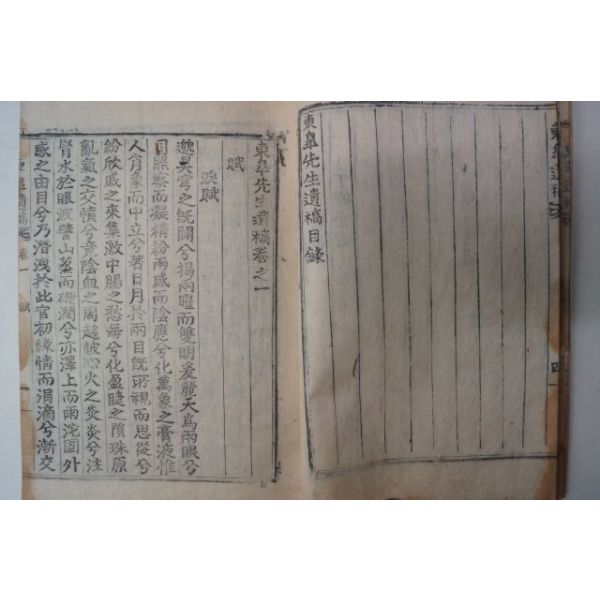 東皐先生遺稿目錄
東皐先生遺稿卷之一
賦
淚賦
邈昊穹之旣闢兮揭兩曜而雙明爰體天爲兩眼兮
照察而凝精紛兩感而陰應兮化萬象之膏液惟
人肖象而中立兮著日月於兩目旣視而思從兮
紛欣戚之來集激中腸之愁毒兮化盈睫之隕珠原
亂氣之交憤兮音陰血之周越被心火之炎炎兮注
腎水於眼波譬山蒸而礎潤兮亦澤上而雨沱固外
感之由目兮乃潛洩於此官初緣情而涓滴兮漸交